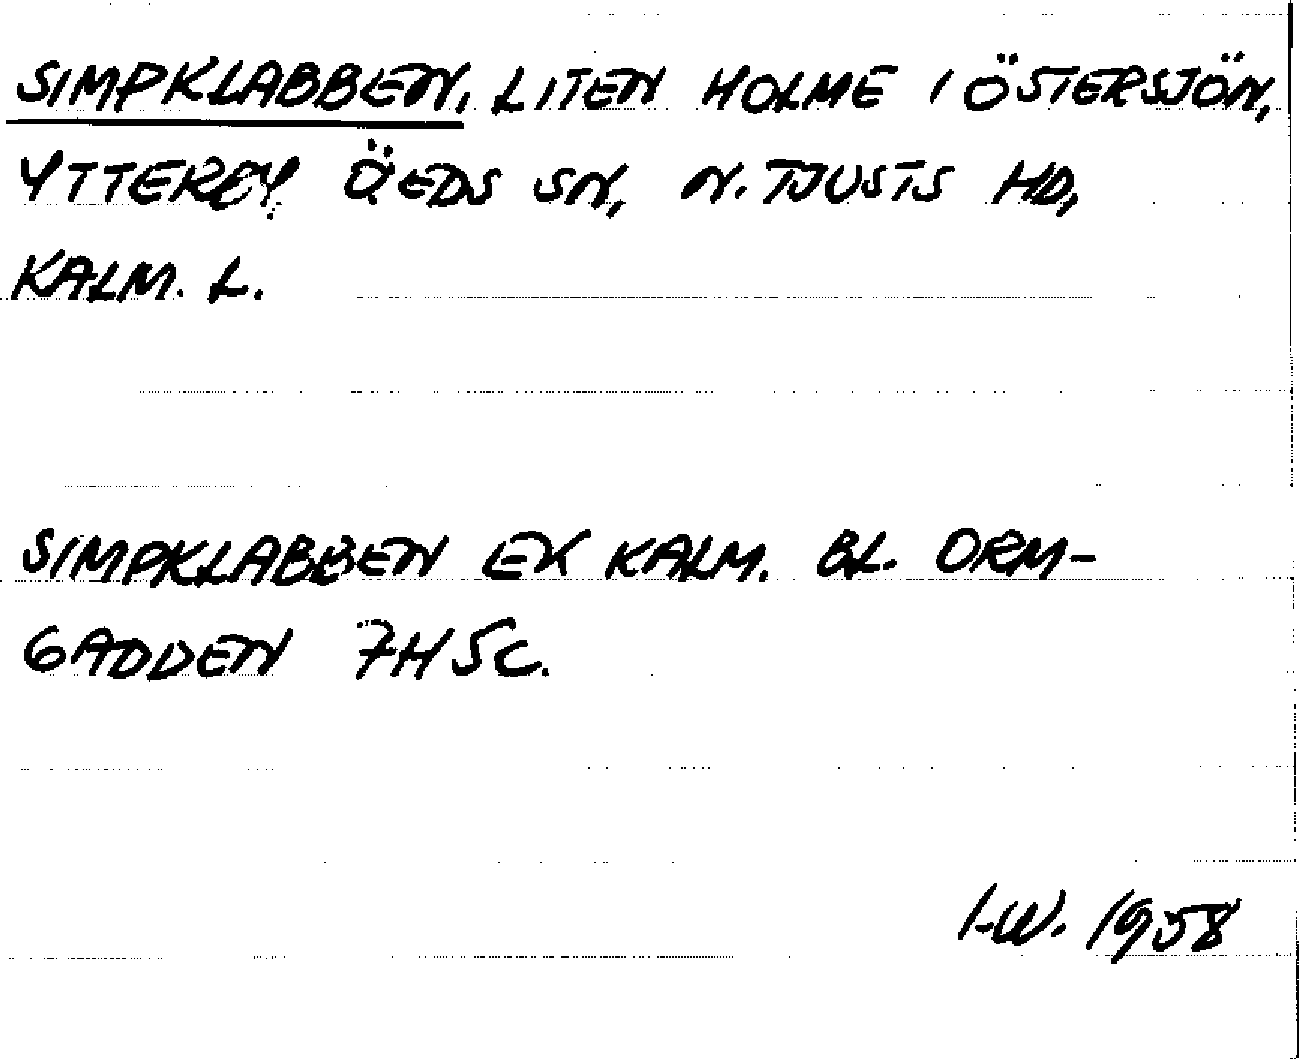 SIMPKLABBEN, LITEN HOLME I ÖSTERSJÖN,
YTTERBY ÖEDS SN, N. TJUSTS HD,
KALM. L.
SIMPKLABBEN EK KALM. BL. ORM-
GADDEN 7H5C.
I-W. 1958